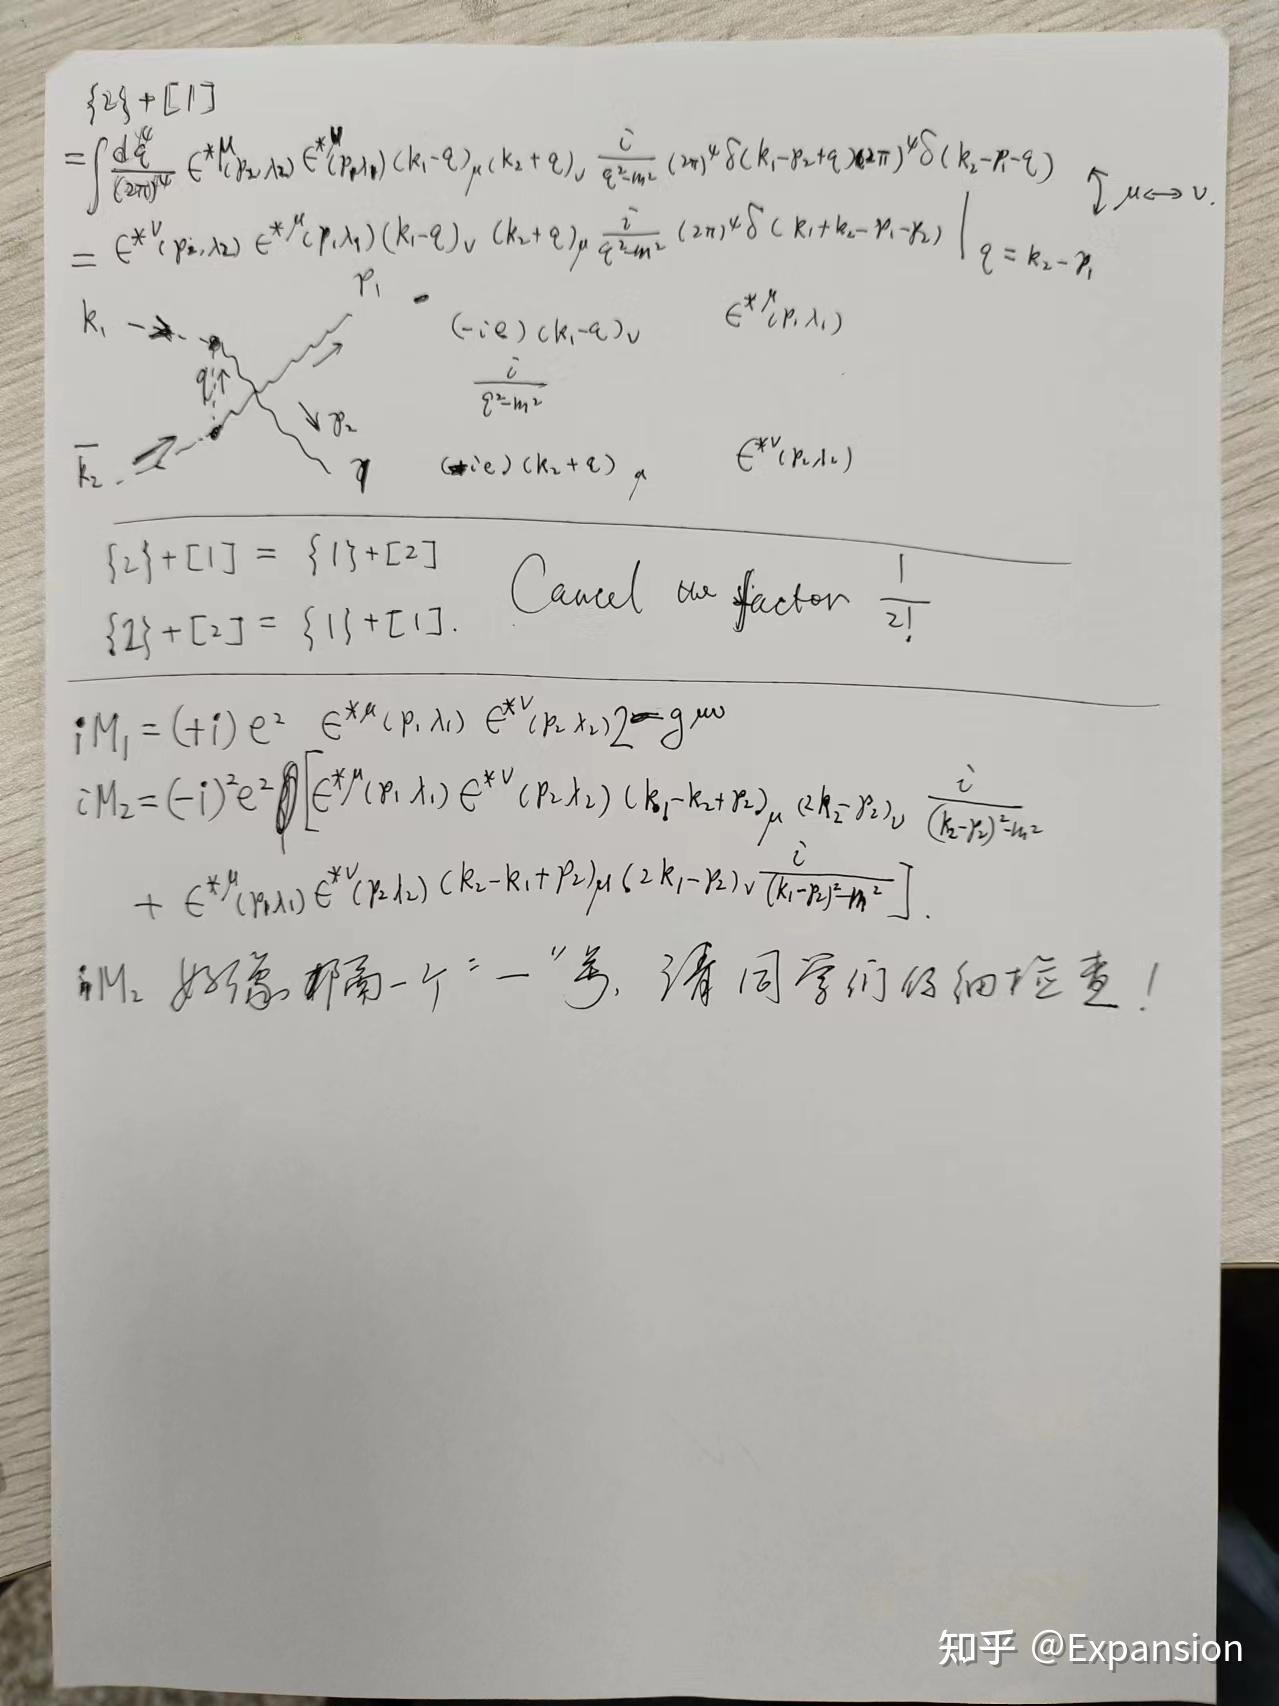 {2}+[1]
=∫ d⁴q/(2π)⁴ ε*^μ(p₂,λ₂) ε*^ν(p₁,λ₁) (k₁-q)_μ (k₂+q)_ν i/(q²-m²) (2π)⁴ δ(k₁-p₂+q) (2π)⁴ δ(k₂-p₁-q) ↕ μ↔ν.
= ε*^ν(p₂,λ₂) ε*^μ(p₁λ₁) (k₁-q)_ν (k₂+q)_μ i/(q²-m²) (2π)⁴ δ(k₁+k₂-p₁-p₂) | q=k₂-p₁
k₁
p₁
(-ie)(k₁-q)_ν
ε*^μ(p₁λ₁)
q
i/(q²-m²)
p₂
k̄₂
ie)(k₂+q)_μ
ε*^ν(p₂λ₂)
{2}+[1] = {1}+[2]
{2}+[2] = {1}+[1].
Cancel the factor 1/2!
iM₁=(+i)e² ε*^μ(p₁λ₁) ε*^ν(p₂λ₂) 2 g_μν
iM₂=(-i)²e² [ε*^μ(p₁λ₁) ε*^ν(p₂λ₂) (k₁-k₂+p₂)_μ (2k₂-p₂)_ν i/((k₂-p₂)²-m²)
+ ε*^μ(p₁λ₁) ε*^ν(p₂λ₂) (k₂-k₁+p₂)_μ (2k₁-p₂)_ν i/((k₁-p₂)²-m²)].
iM₂ 好像都需一个"-"号，请同学们仔细检查！
知乎 @Expansion